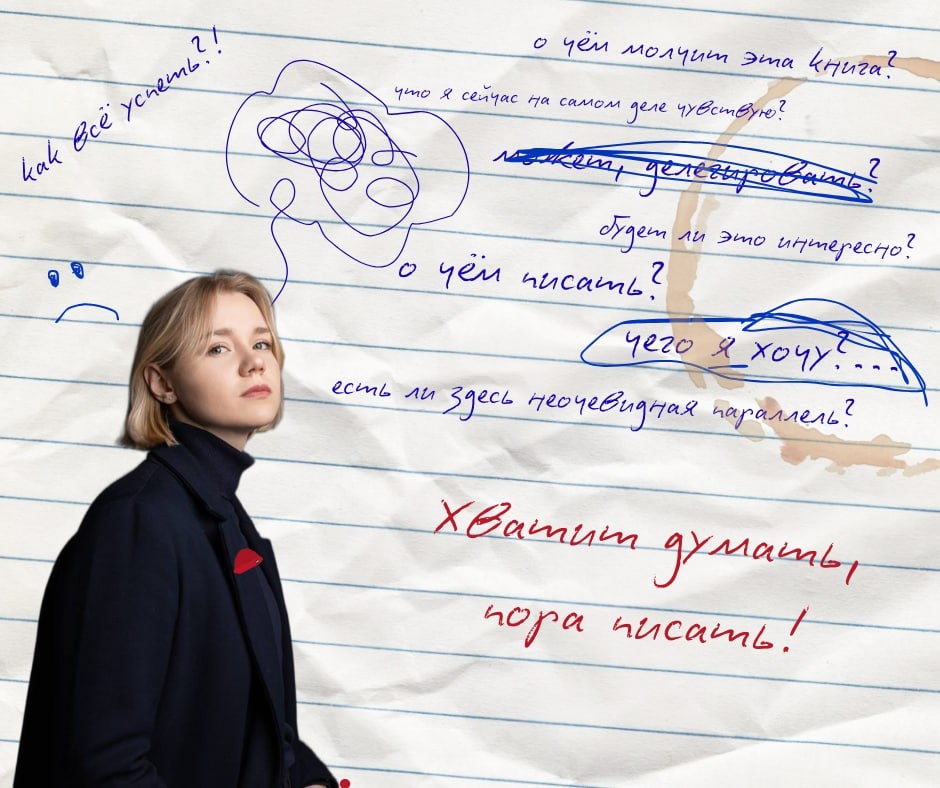 как всё успеть?!
о чём молчит эта книга?
что я сейчас на самом деле чувствую?
может, делегировать?
будет ли это интересно?
о чём писать?
чего я хочу?....
есть ли здесь неочевидная параллель?
Хватит думать,
пора писать!